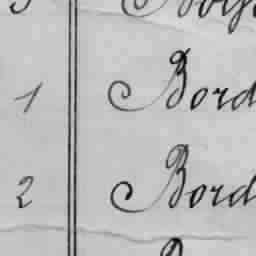 1 Bord
2 Bord